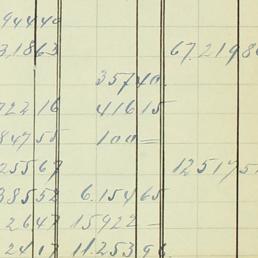 94440
3.1863 67.2198
35740.
72216 41615
84755 100=
25567 125175
38552 6.15465
2647 15922-
2417 11.25396